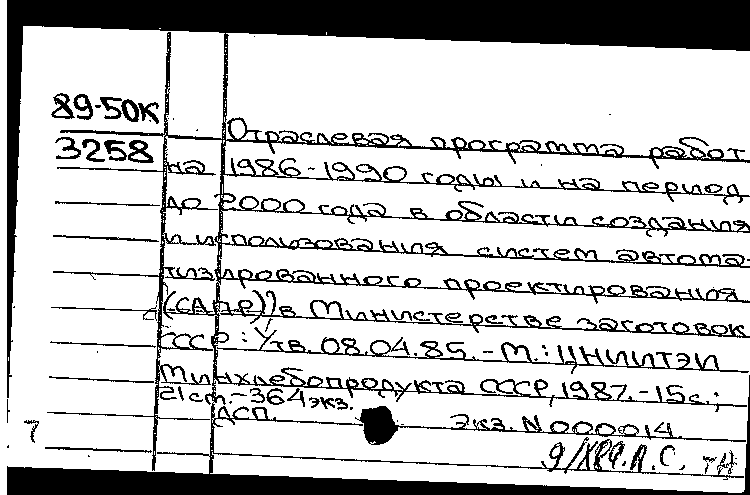 89-50К
3258
Отраслевая программа работ
на 1986-1990 годы и на период
до 2000 года в области создания
и использования систем автома-
тизированного проектирования
(САПР) в Министерстве заготовок
СССР: Утв. 08.04.85.-М.: ЦНИИТЭИ
Минхлебопродукта СССР, 1987.-15с.;
21см.-364экз.
ДСП. Экз. N000014.
7